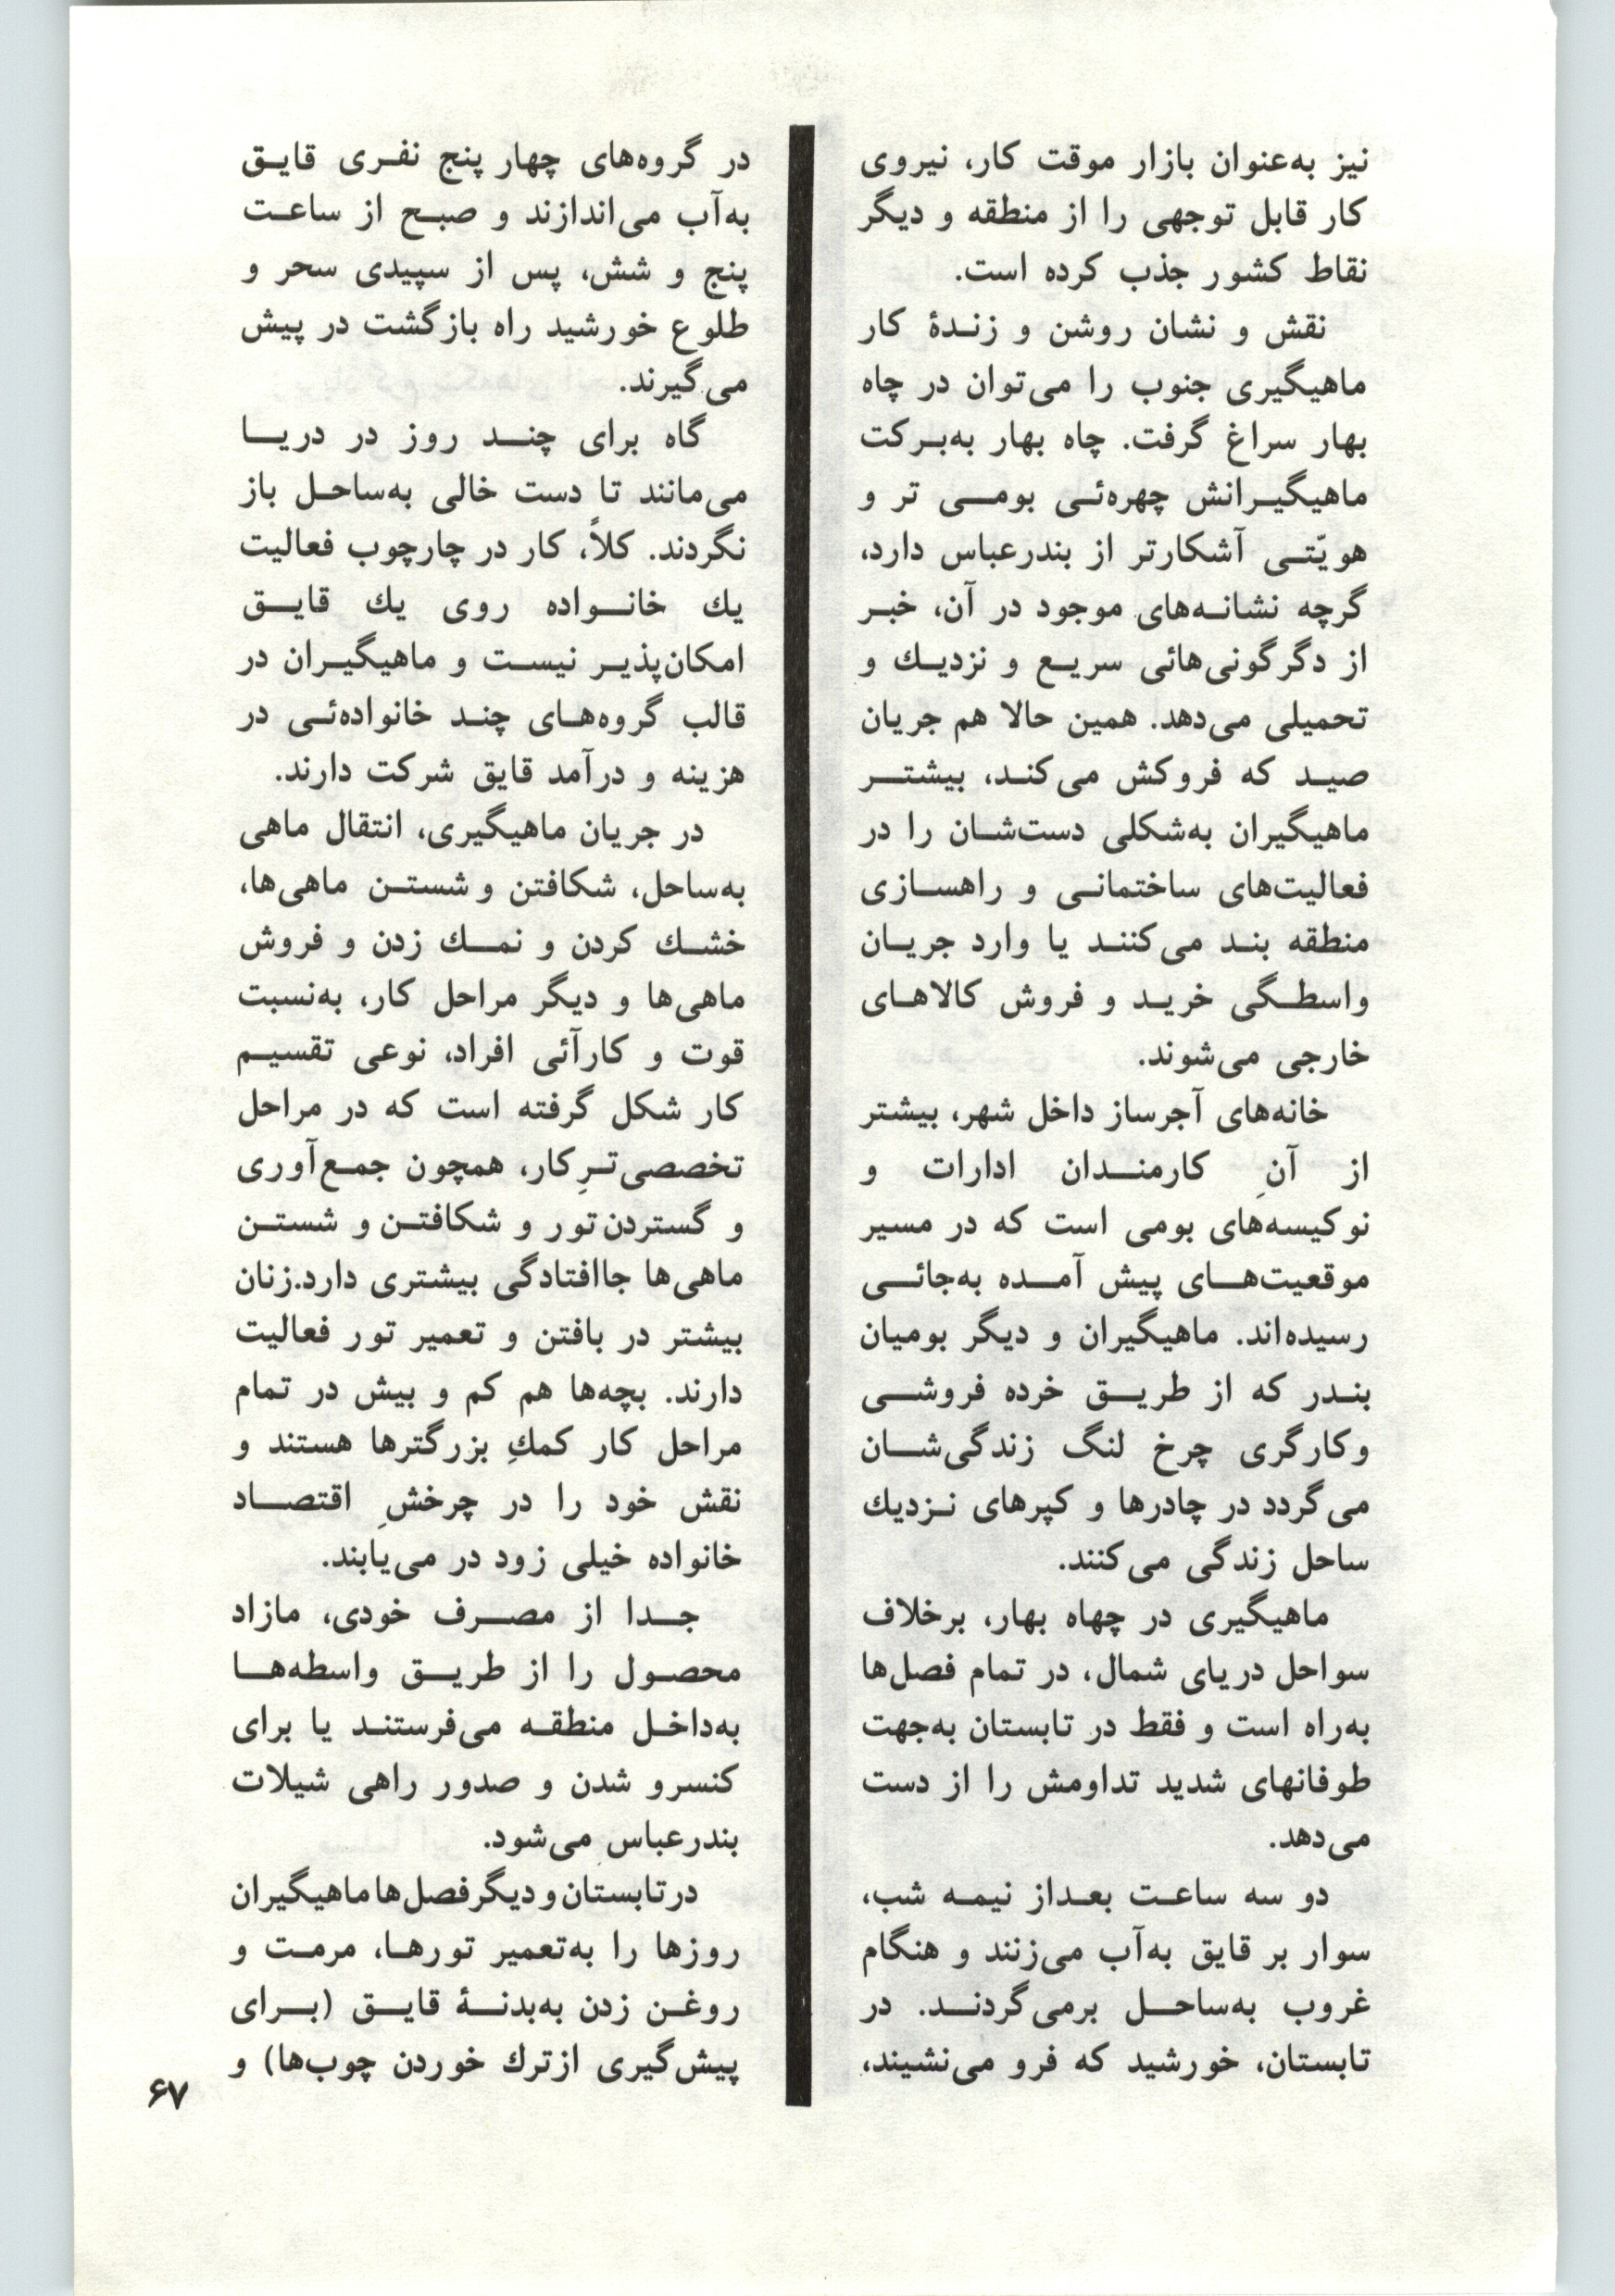 نیز به‌عنوان بازار موقت کار، نیروی
کار قابل توجهی را از منطقه و دیگر
نقاط کشور جذب کرده است.
نقش و نشان روشن و زندهٔ کار
ماهیگیری جنوب را می‌توان در چاه
بهار سراغ گرفت. چاه بهار به‌برکت
ماهیگیرانش چهره‌ئی بومی تر و
هویّتی آشکارتر از بندرعباس دارد،
گرچه نشانه‌های موجود در آن، خبر
از دگرگونی‌هائی سریع و نزدیك و
تحمیلی می‌دهد. همین حالا هم جریان
صید که فروکش می‌کند، بیشتر
ماهیگیران به‌شکلی دست‌شان را در
فعالیت‌های ساختمانی و راهسازی
منطقه بند می‌کنند یا وارد جریان
واسطگی خرید و فروش کالاهای
خارجی می‌شوند.
خانه‌های آجرساز داخل شهر، بیشتر
از آنِ کارمندان ادارات و
نوکیسه‌های بومی است که در مسیر
موقعیت‌های پیش آمده به‌جائی
رسیده‌اند. ماهیگیران و دیگر بومیان
بندر که از طریق خرده فروشی
وکارگری چرخ لنگ زندگی‌شان
می‌گردد در چادرها و کپرهای نزدیك
ساحل زندگی می‌کنند.
ماهیگیری در چهاه بهار، برخلاف
سواحل دریای شمال، در تمام فصل‌ها
به‌راه است و فقط در تابستان به‌جهت
طوفانهای شدید تداومش را از دست
می‌دهد.
دو سه ساعت بعداز نیمه شب،
سوار بر قایق به‌آب می‌زنند و هنگام
غروب به‌ساحل برمی‌گردند. در
تابستان، خورشید که فرو می‌نشیند،
در گروه‌های چهار پنج نفری قایق
به‌آب می‌اندازند و صبح از ساعت
پنج و شش، پس از سپیدی سحر و
طلوع خورشید راه بازگشت در پیش
می‌گیرند.
گاه برای چند روز در دریا
می‌مانند تا دست خالی به‌ساحل باز
نگردند. کلاً، کار در چارچوب فعالیت
یك خانواده روی یك قایق
امکان‌پذیر نیست و ماهیگیران در
قالب گروه‌های چند خانواده‌ئی در
هزینه و درآمد قایق شرکت دارند.
در جریان ماهیگیری، انتقال ماهی
به‌ساحل، شکافتن و شستن ماهی‌ها،
خشك کردن و نمك زدن و فروش
ماهی‌ها و دیگر مراحل کار، به‌نسبت
قوت و کارآئی افراد، نوعی تقسیم
کار شکل گرفته است که در مراحل
تخصصی‌ترِ کار، همچون جمع‌آوری
و گستردن تور و شکافتن و شستن
ماهی‌ها جاافتادگی بیشتری دارد.زنان
بیشتر در بافتن و تعمیر تور فعالیت
دارند. بچه‌ها هم کم و بیش در تمام
مراحل کار کمكِ بزرگترها هستند و
نقش خود را در چرخشِ اقتصاد
خانواده خیلی زود در می‌یابند.
جدا از مصرف خودی، مازاد
محصول را از طریق واسطه‌ها
به‌داخل منطقه می‌فرستند یا برای
کنسرو شدن و صدور راهی شیلات
بندرعباس می‌شود.
در تابستان و دیگر فصل‌ها ماهیگیران
روزها را به‌تعمیر تورها، مرمت و
روغن زدن به‌بدنهٔ قایق (برای
پیش‌گیری ازترك خوردن چوب‌ها) و
۶۷